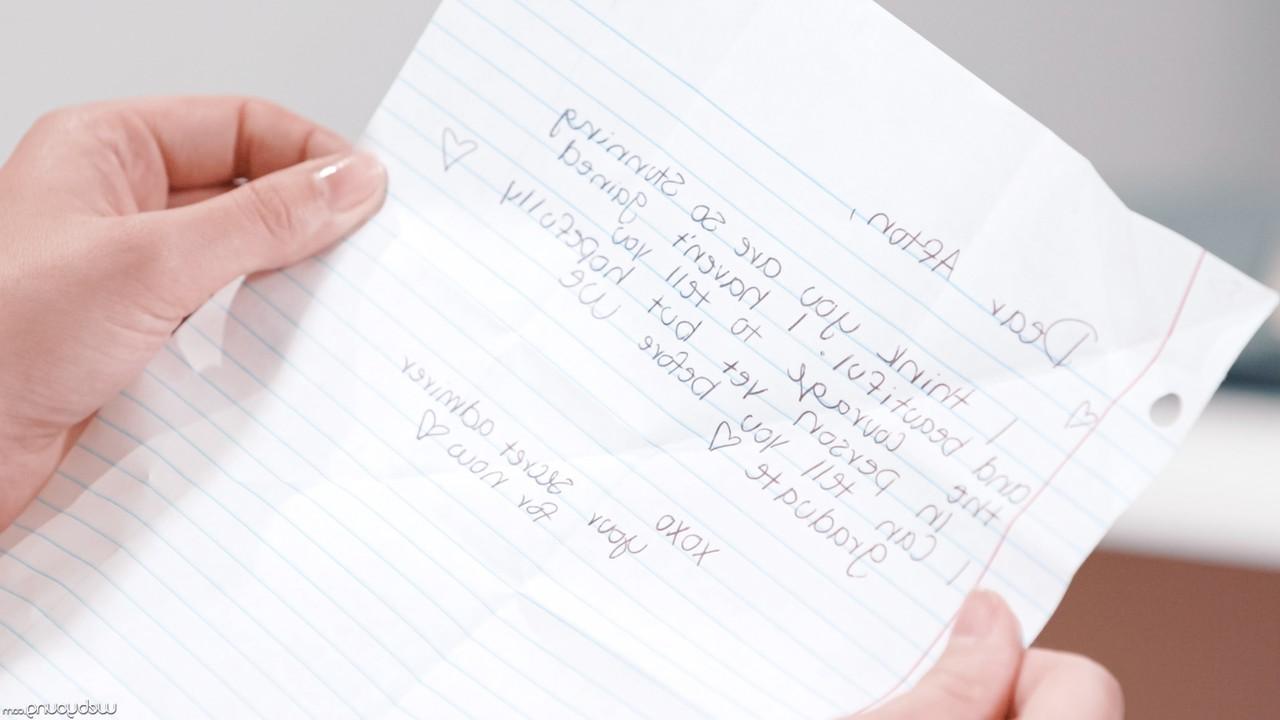 Dear Afton,
♡ I think you are so stunning
and beautiful. I haven't gained
the courage to tell you
in person yet but hopefully ♡
I can tell you before we
graduate ♡
xoxo
your secret admirer
for now ♡